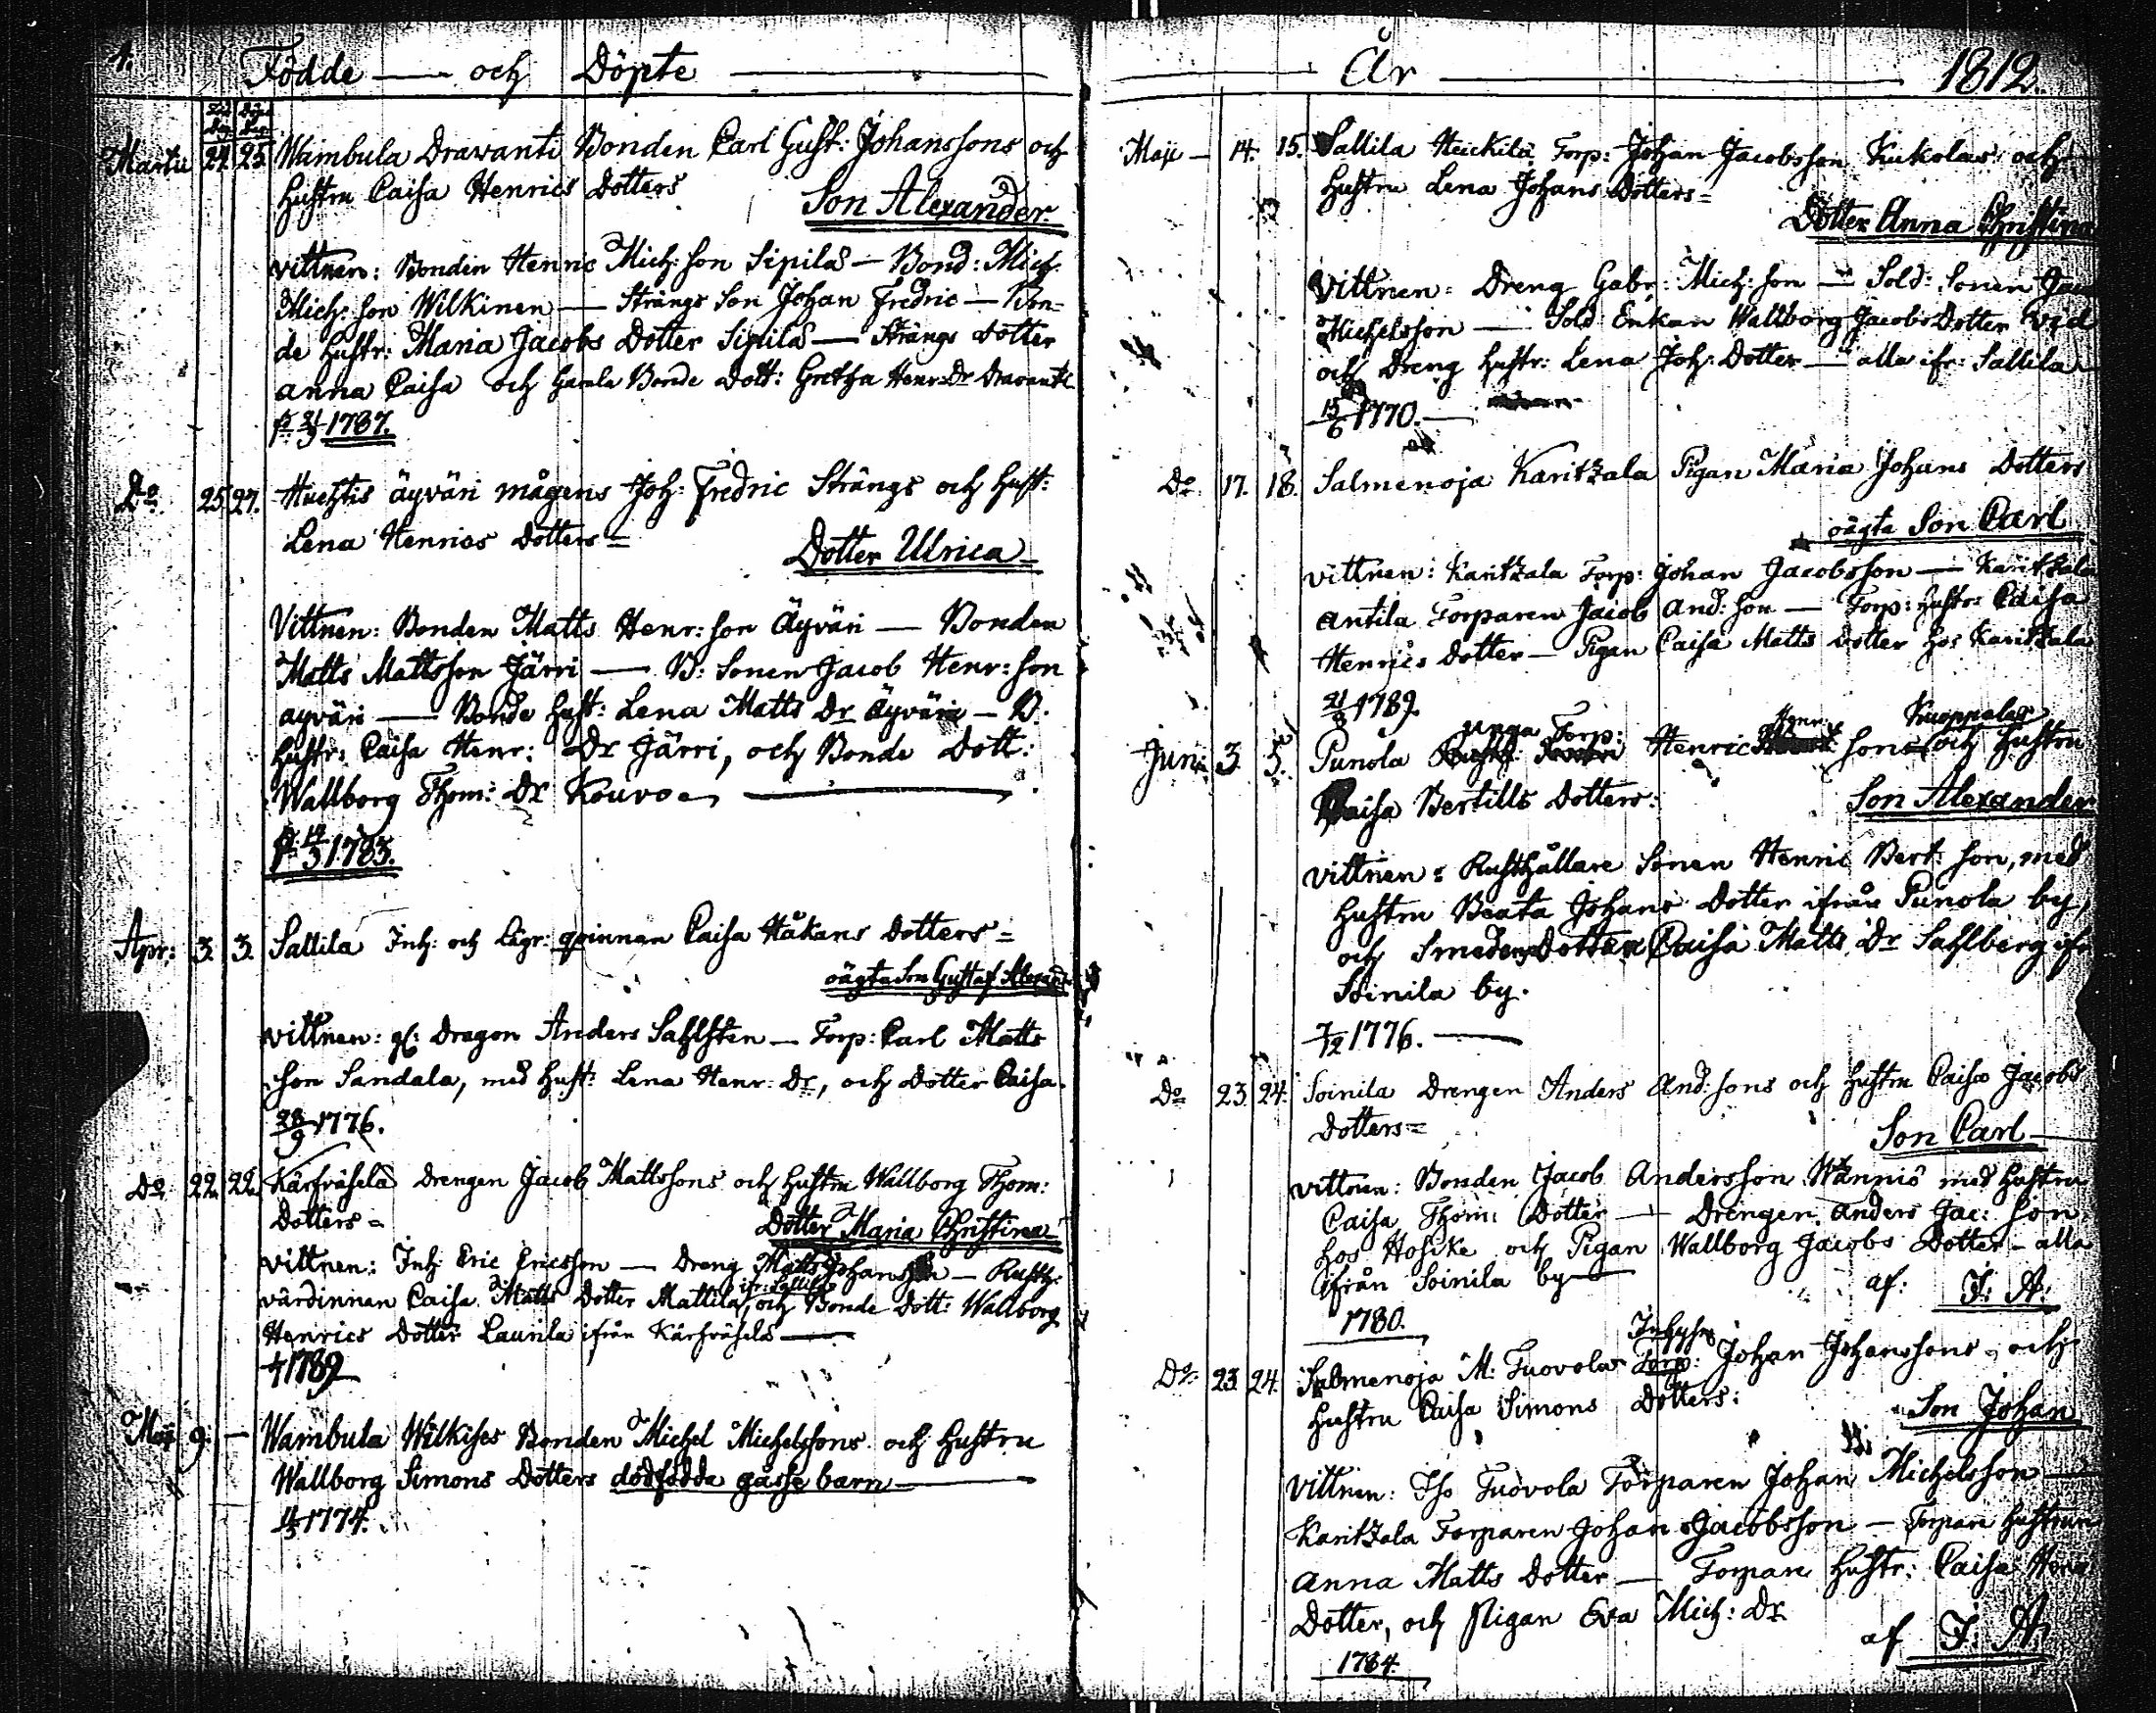 4.
Födde — och Döpte
Född Dag Döpt Dag
Martii 24. 25. Wambula Dravanti Bonden Carl Gust: Johanssons och
hustru Caisa Henrics Dotters
Son Alexander.
Vittnen: Bonden Henric Mich: son Sipilä — Bond: Mich.
Mich: son Wilkinen — Strångs Son Johan Fredric — Bon-
de hustr: Maria Jacobs Dotter Sipilä — Strångs dotter
Anna Caisa och Gamla Bonde dott: Gretha Henr: Dr Dravanti
1787.
Do. 25. 27. Huchtis äyväri mågens Joh: Fredric Strångs och hust:
Lena Henrics Dotters =
Dotter Ulrica
Vittnen: Bonden Matts Henr: son Äyväri — Bonden
Matts Mattsson Järri — B: Sonen Jacob Henr: son
äyväri — Bonde hust: Lena Matts Dr Äyväri — B.
hustr: Caisa Henr: Dr Järri, och Bonde Dott:
Wallborg Thom: Dr Kouvo —
1783.
Apr: 3. 3. Sallila Inh: och Lägr: qvinnan Caisa Håkans Dotters =
oägta Son Gustaf Alexand
Vittnen: gl: Dragon Anders Sahlsten — Torp: Carl Matts
son Sandala, med hust: Lena Henr: Dr, och dotter Caisa.
28/9 1776.
Do 22. 22. Kärfväselä Drengen Jacob Mattssons och hustru Wallborg Thom:
Dotters =
Dotter Maria Christina
Vittnen: Inh: Eric Ericsson — Dreng Matts Johansson — Rusth:
ifr: Sallila
värdinnan Caisa Matts Dotter Mattila, och Bonde Dott: Wallborg
Henrics Dotter Laurila ifrån Kärfväselä —
1789
Maji 9. — Wambula Wilkises Bonden Michel Michelssons och hustru
Wallborg Simons Dotters dödfödda gåsse barn —
1774.
År 1812.
Maji — 14. 15. Sallila Heickilä Torp: Johan Jacobsson Kukolas och
hustru Lena Johans Dotters =
Dotter Anna Christina
Vittnen: Dreng Gabr: Mich: son — Sold: Sonen
Michelsson — Sold: Enkan Wallborg Jacobs Dotter
och Dreng hustr: Lena Joh: Dotter — alla ifr: Sallila
15/6 1770. —
Do. 17. 18. Salmenoja Karitzala Pigan Maria Johans Dotters
oägta Son Carl
Vittnen: Karitzala Torp: Johan Jacobsson — Karitzala
Antila Torparen Jacob And: son — Torp: hustr: Caisa
Henrics Dotter — Pigan Caisa Matts Dotter hos Karitzala
1789.
unga Torp: Henr Kuoppalas
Juni 3. 5. Punola Henric sons och hustru
Caisa Bertills Dotters:
Son Alexander
Vittnen: Rusthållare Sonen Henric Bert: son, med
hustru Beata Johans Dotter ifrån Punola by,
och Smedens Dotter Caisa Matts Dr Sahlberg ifr
Soinila by.
7/12 1776. —
Do 23. 24. Soinila Drengen Anders And: sons och hustru Caisa Jacobs
Dotters =
Son Carl
Vittnen: Bonden Jacob Andersson Wänniö med hustru
Caisa Thom: Dotter — Drengen Anders Jac: son
hos Hosike och Pigan Wallborg Jacobs Dotter — alla
ifrån Soinila by — af: J: A:
1780.
Inhyses
Do. 23. 24. Salmenoja M: Tuovolas Torp: Johan Johanssons och
hustru Caisa Simons Dotters:
Son Johan
Vittnen: Iso Tuovola Torparen Johan Michelsson —
Karitzala Torparen Johan Jacobsson — Torpare hustrun
Anna Matts Dotter — Torpare hustr: Caisa Henr
Dotter, och Pigan Eva Mich: Dr
af J: A:
1784.